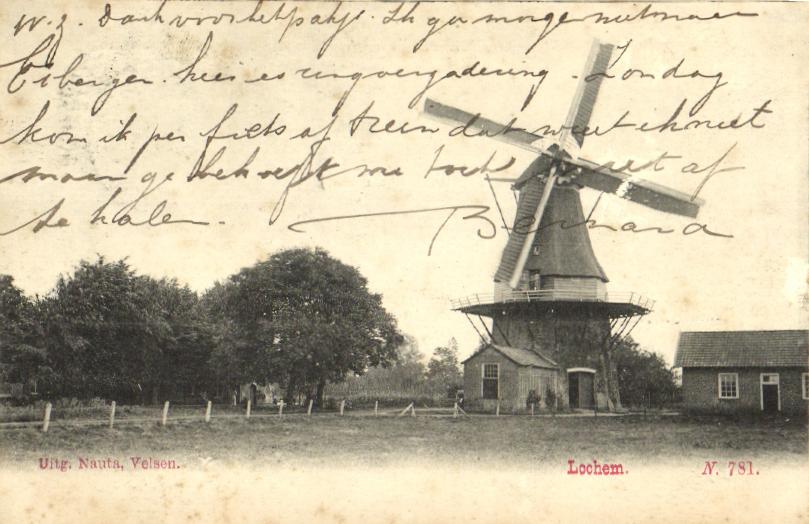 W. Z. Dank voor het pakje. Ik ga morgen met maar
Eibergen. hier is ringvergadering. Zondag
kom ik per fiets of trein dat weet ik niet
maar ge behoeft me toch niet af
te halen.
Bernard
Uitg. Nauta, Velsen.
Lochem.
N. 781.